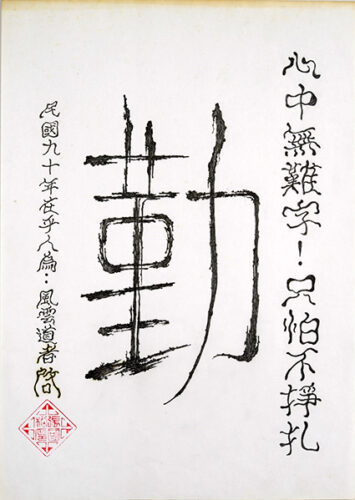 心中無難字！只怕不掙扎
勤
民國九十年在乎人為：風雲道者啓